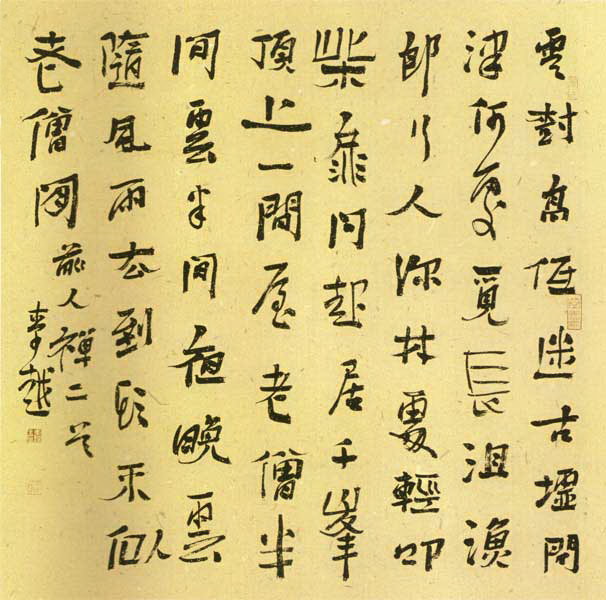 雲封高低迷古墟問
津何處覓長沮漁
郎引入深林處輕叩
柴扉問起居千峯
頂上一間屋老僧半
間雲半間夜晚雲
隨風雨去到頭不似
老僧閒
前人禪二首
李越